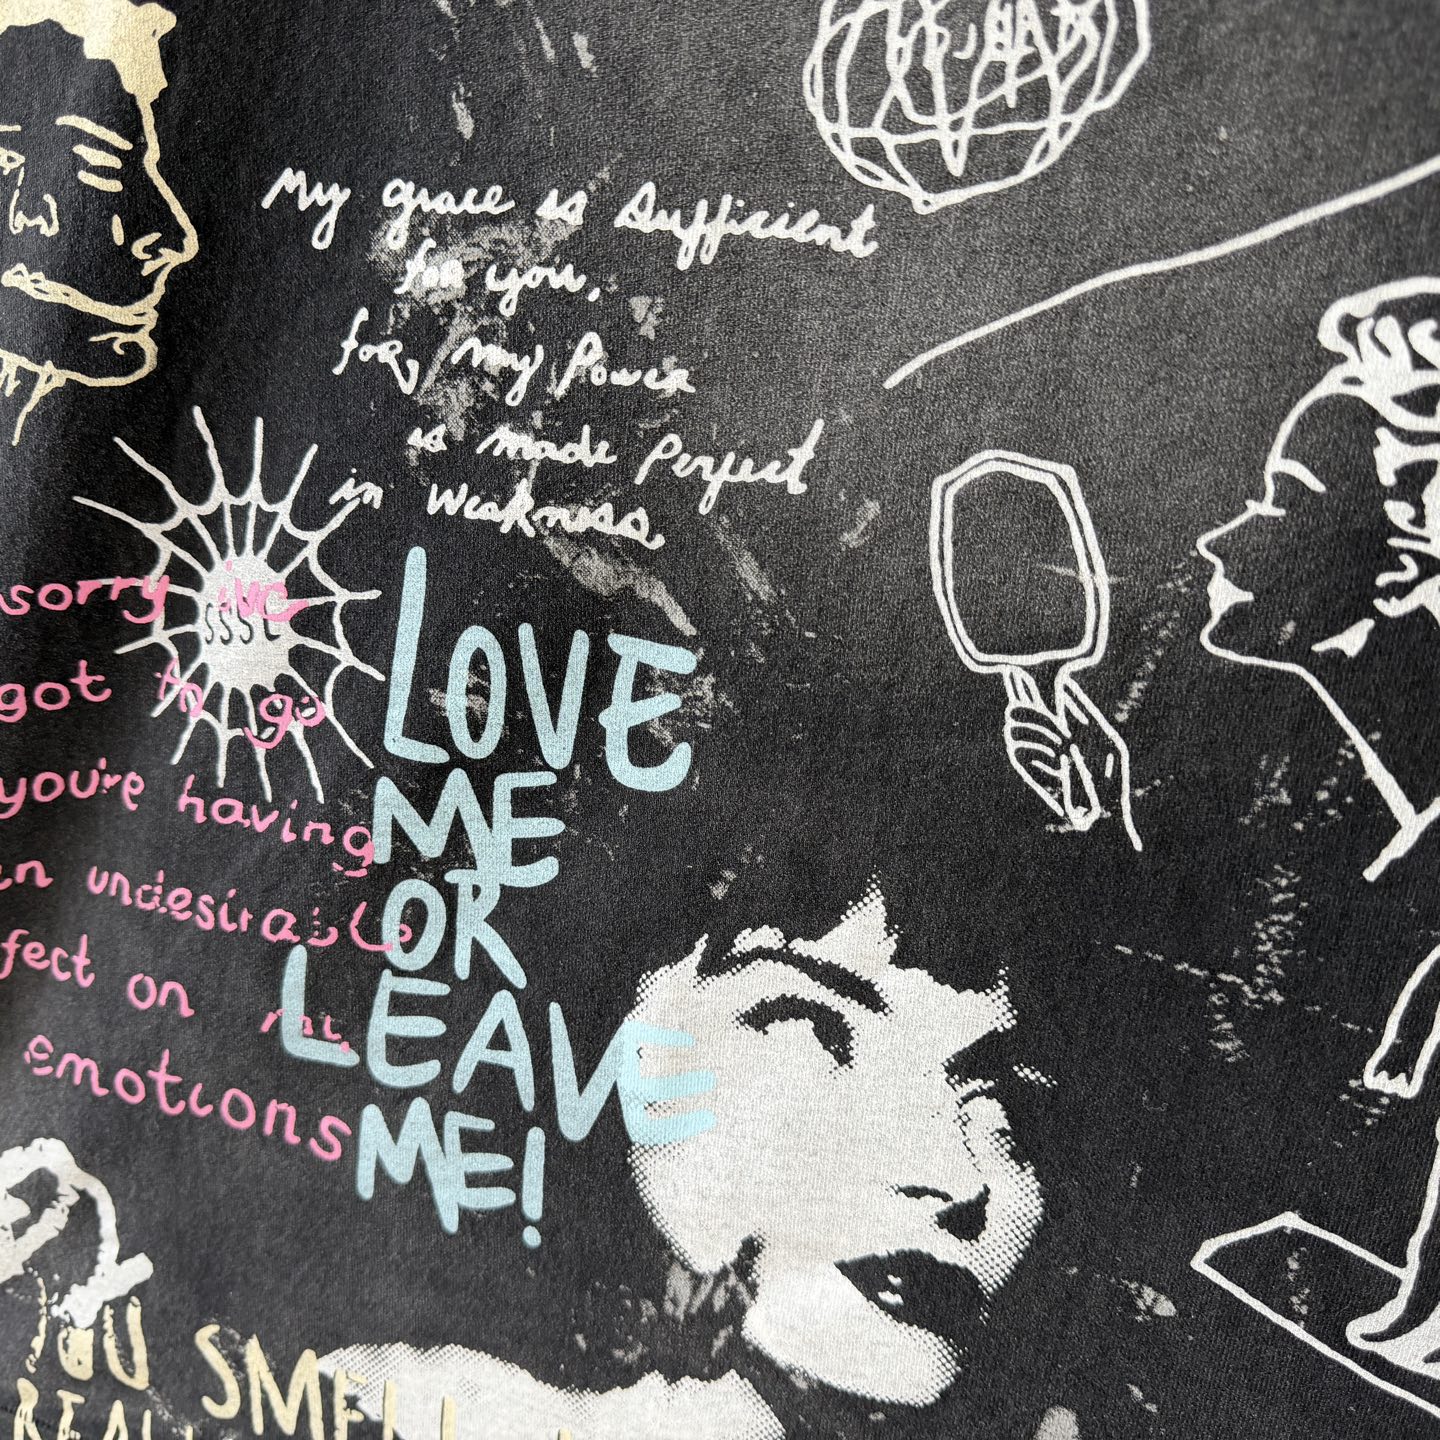 My grace is sufficient
for you,
for, my Power
is made Perfect
in weakness,
sorry ive
got to go
you're having
an undesirable
fect on my
emotions
SSSL
LOVE
ME
OR
LEAVE
ME!
YOU SMELL
REAL